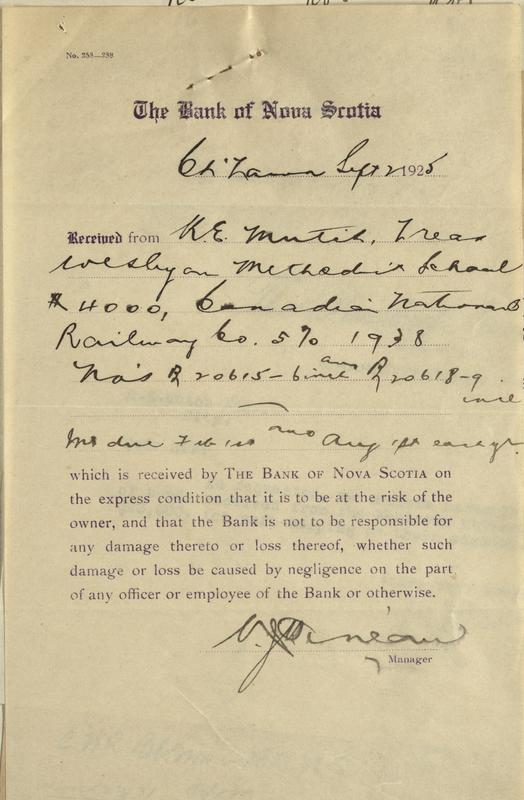 No. 258—238
The Bank of Nova Scotia
Ottawa Sept 2 1925
Received from K.E. Treas
Wesleyan Methodist School
$4000, Canadian National
Railway Co. 5% 1938
No's R 20615-6 incl and R 20618-9
incl
Int due Feb 1st and Aug 1st each yr.
which is received by THE BANK OF NOVA SCOTIA on
the express condition that it is to be at the risk of the
owner, and that the Bank is not to be responsible for
any damage thereto or loss thereof, whether such
damage or loss be caused by negligence on the part
of any officer or employee of the Bank or otherwise.
Manager